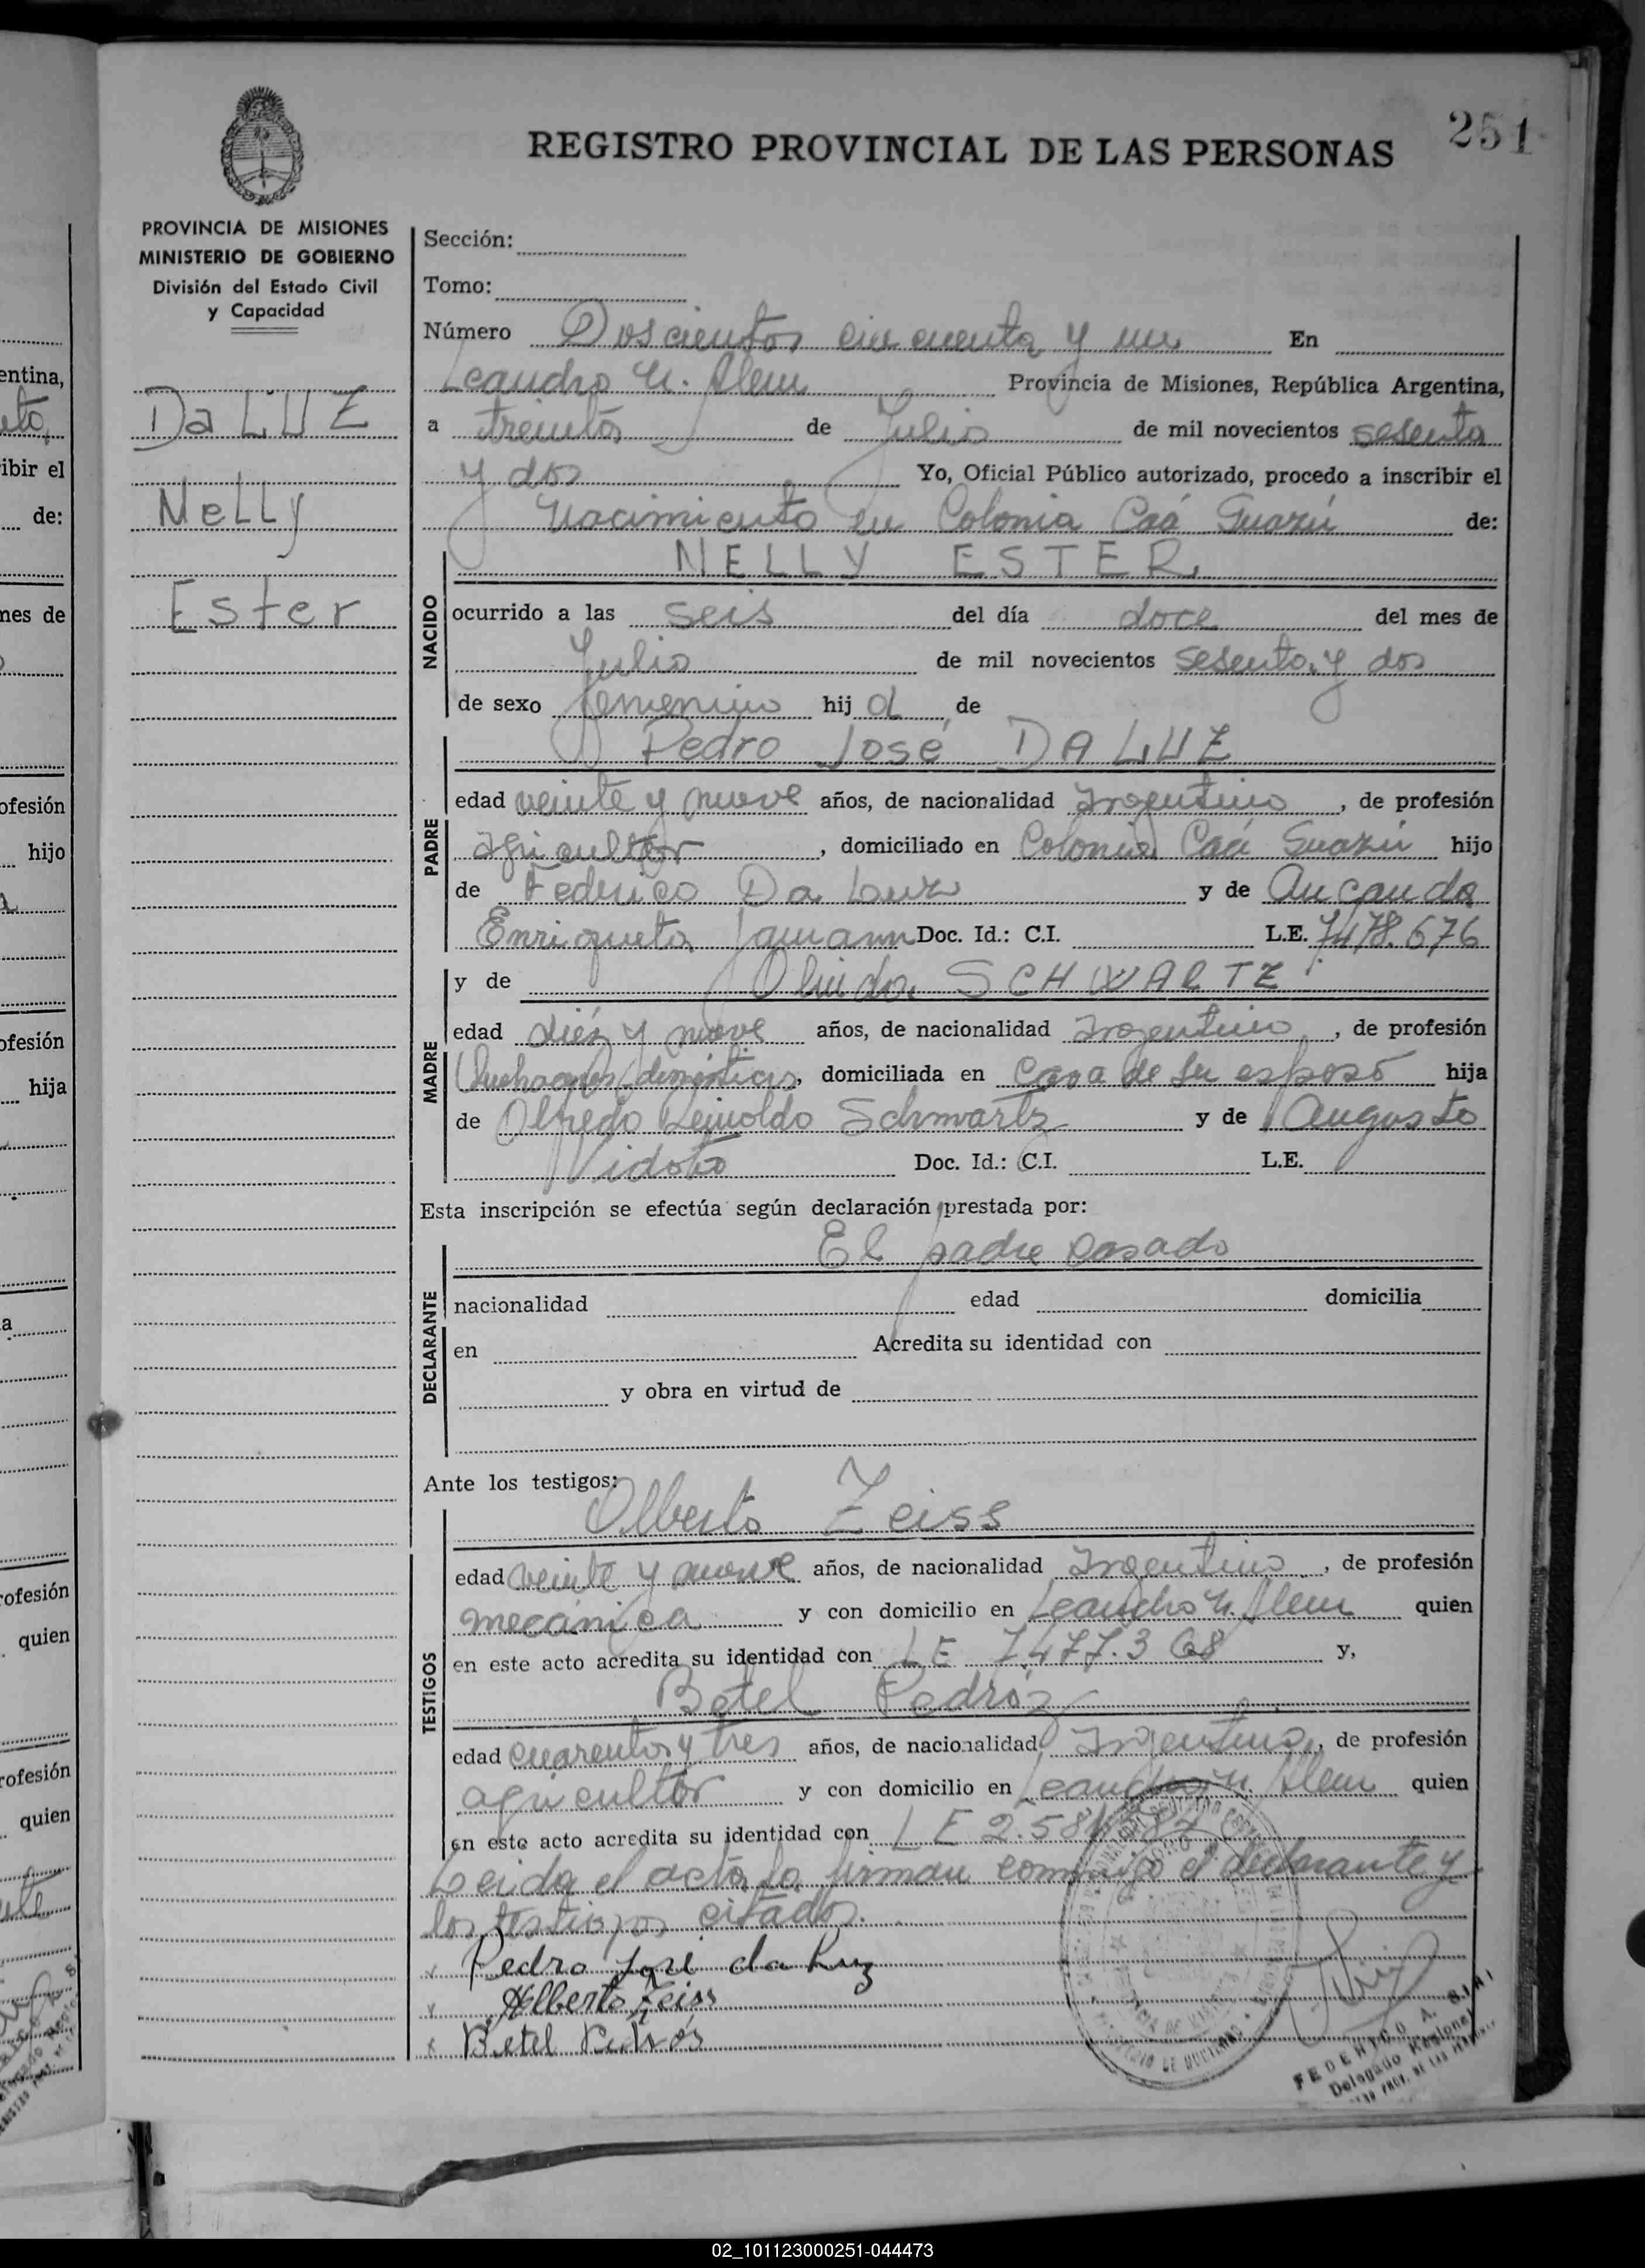 251
REGISTRO PROVINCIAL DE LAS PERSONAS
PROVINCIA DE MISIONES
MINISTERIO DE GOBIERNO
División del Estado Civil
y Capacidad
Da LUZ
Nelly
Ester
Sección:
Tomo:
Número Doscientos cincuenta y un En
Leandro N. Alem Provincia de Misiones, República Argentina,
a treinta de Julio de mil novecientos sesenta
y dos Yo, Oficial Público autorizado, procedo a inscribir el
nacimiento en Colonia Caá Guazú de:
NACIDO
NELLY ESTER
ocurrido a las seis del día doce del mes de
Julio de mil novecientos sesenta y dos
de sexo femenino hij a de
PADRE
Pedro José DA LUZ
edad veinte y nueve años, de nacionalidad Argentino, de profesión
agricultor, domiciliado en Colonia Caá Guazú hijo
de Federico Da Luz y de
Enriqueta Doc. Id.: C.I. L.E. 7478.676
MADRE
y de SCHWARTZ
edad diez y nueve años, de nacionalidad Argentina, de profesión
Quehaceres domésticos, domiciliada en Casa de su esposo hija
de Alfredo Reinoldo Schwartz y de Augusta
Doc. Id.: C.I. L.E.
Esta inscripción se efectúa según declaración prestada por:
DECLARANTE
El padre casado
nacionalidad edad domicilia
en Acredita su identidad con
y obra en virtud de
Ante los testigos:
TESTIGOS
Alberto Zeiss
edad veinte y nueve años, de nacionalidad Argentino, de profesión
mecánica y con domicilio en Leandro N. Alem quien
en este acto acredita su identidad con LE 7.477.368 y,
Betel Pedróz
edad cuarenta y tres años, de nacionalidad Argentino, de profesión
agricultor y con domicilio en Leandro N. Alem quien
en este acto acredita su identidad con LE
Leida el acta la firman conmigo el declarante y
los testigos citados.
Pedro José da Luz
Alberto Zeiss
Betel Pedrós
FEDERICO A.
Delegado Regional
02_101123000251-044473